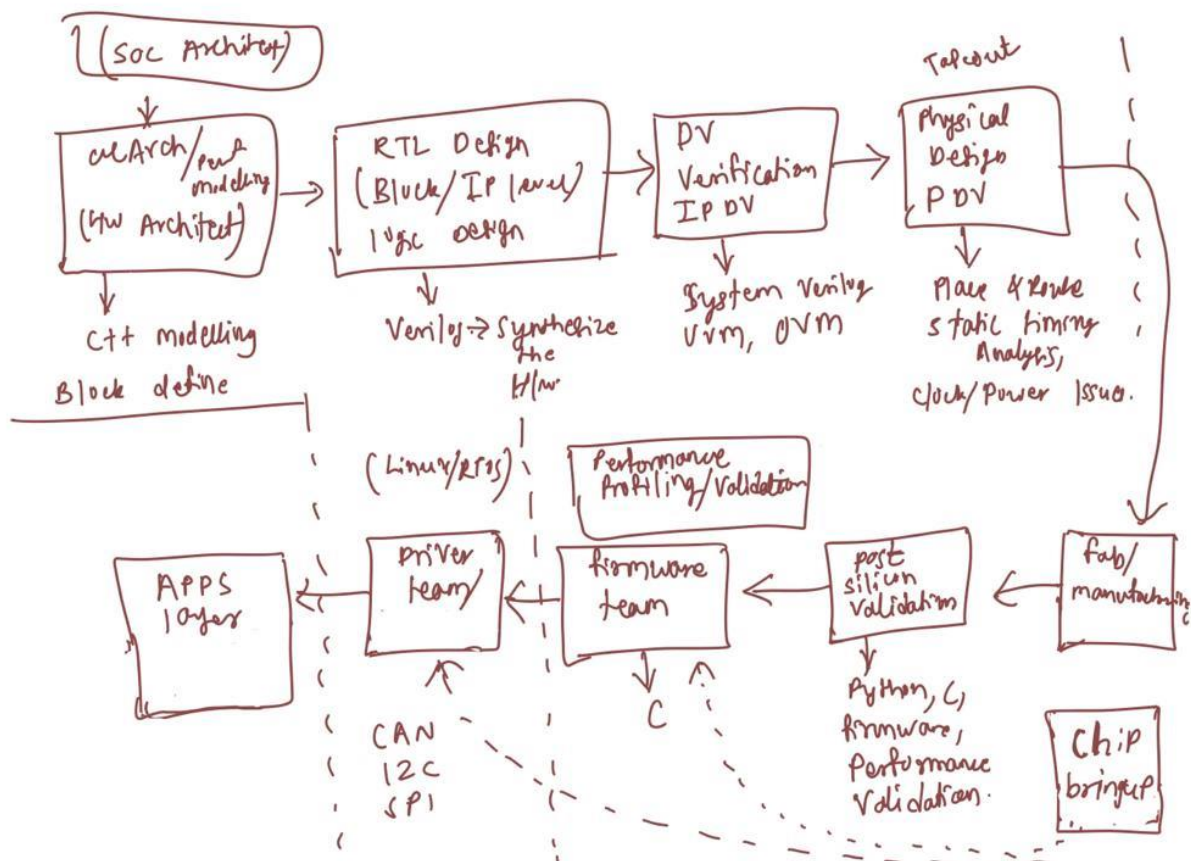 (SOC Architect)
uArch/Perf
modelling
(HW Architect)
C++ modelling
Block define
RTL Design
(Block/IP level)
logic design
Verilog → Synthesize
the
H/w.
DV
Verification
IP DV
System Verilog
UVM, OVM
Tapeout
Physical
Design
PDV
Place & Route
Static timing
Analysis,
Clock/Power Issue.
fab/
manufacturing
post
silicon
validation
Python, C,
firmware,
Performance
Validation.
Chip
bringup
Performance
Profiling/Validation
firmware
team
C
(Linux/RTOS)
Driver
team/
CAN
I2C
SPI
APPS
layer